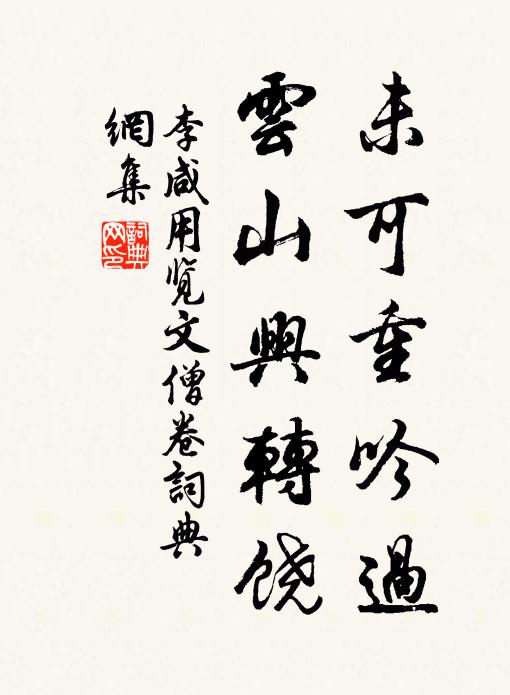 未可重吟過
雲山興轉饒
李咸用覽文僧卷詞典
網集
詞典网印